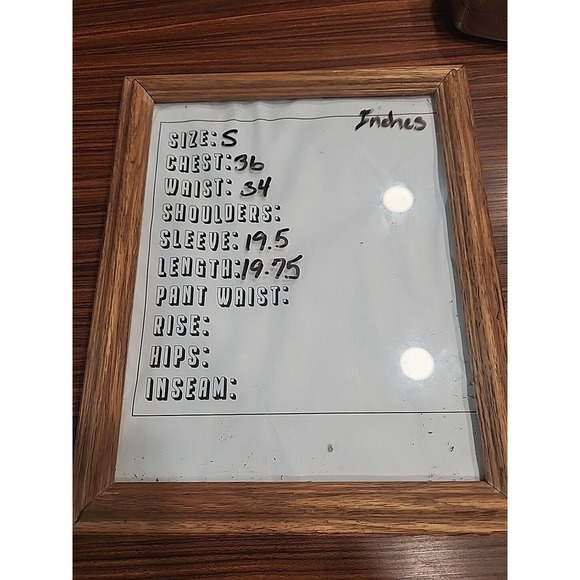 Inches
SIZE: S
CHEST: 36
WAIST: 34
SHOULDERS:
SLEEVE: 19.5
LENGTH: 19.75
PANT WAIST:
RISE:
HIPS:
INSEAM: